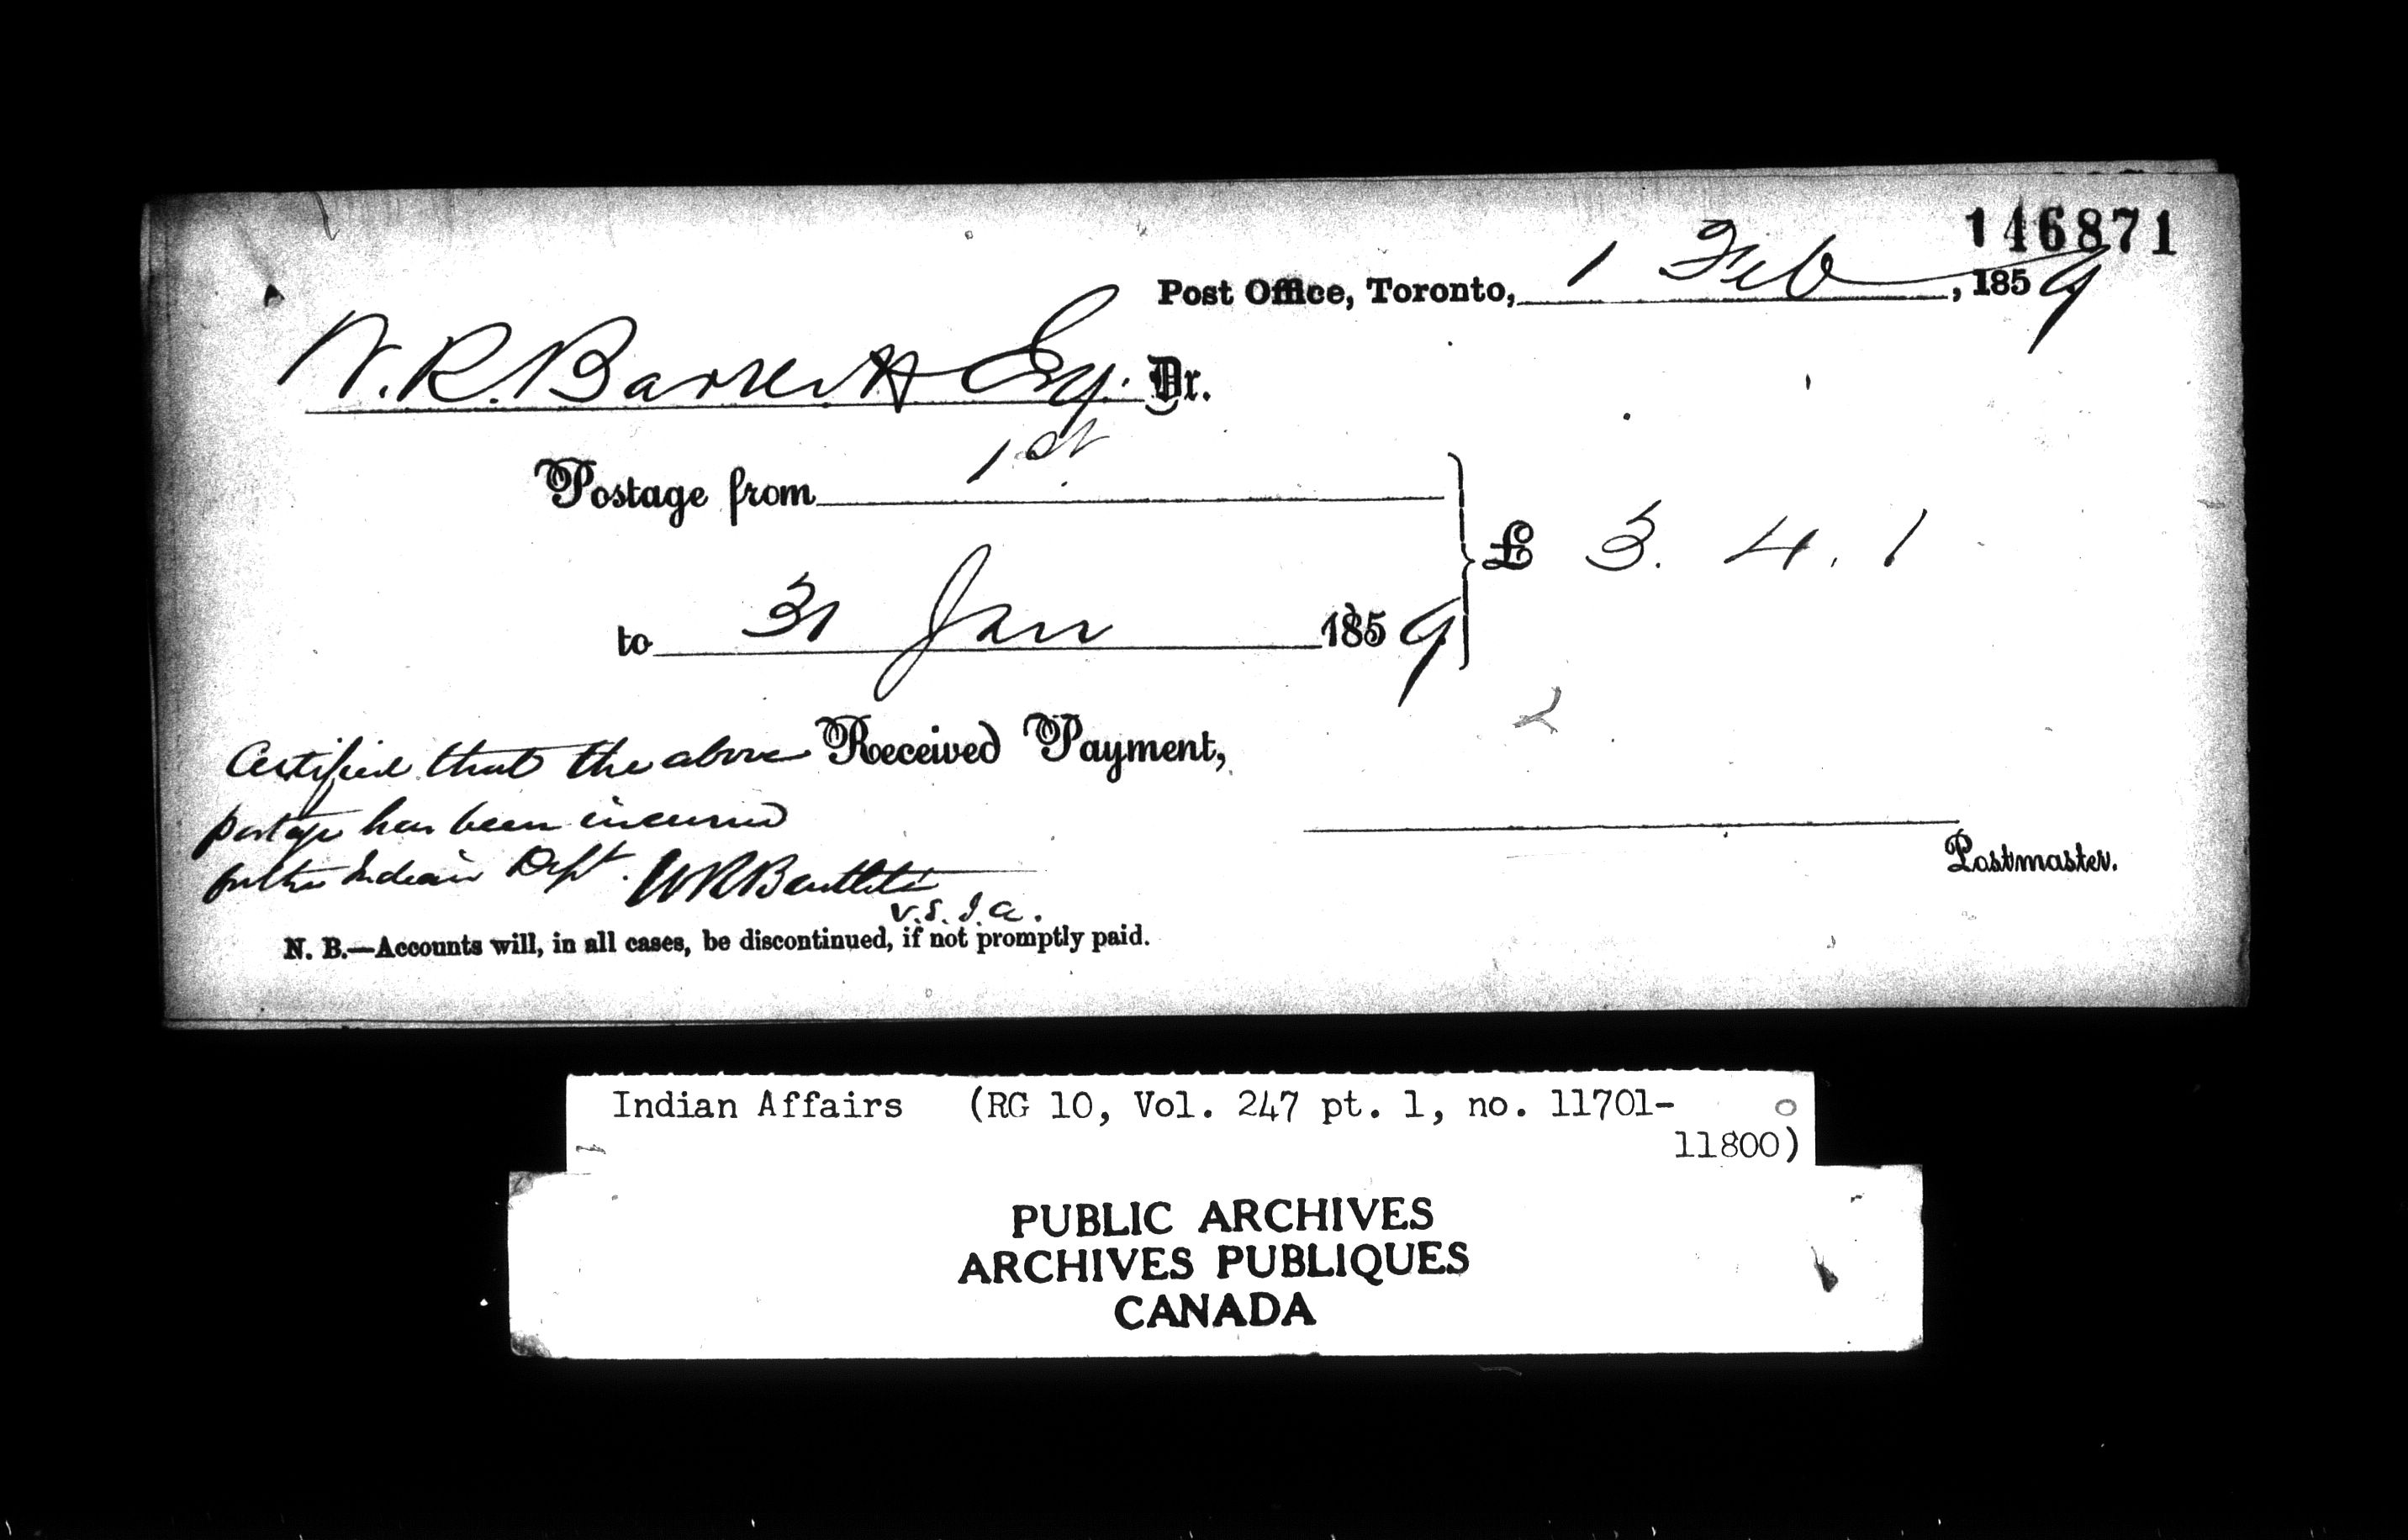 146871
Post Office, Toronto, 1 Feb, 1859
W. R. Barrett Esq. Dr.
Postage from 1st
to 31 Jan 1859
£ 3. 4. 1
Received Payment,
Certified that the above
postage has been incurred
for the Indian Dept. WRBartlett
V. S. I. A.
Postmaster.
N. B.—Accounts will, in all cases, be discontinued, if not promptly paid.
Indian Affairs (RG 10, Vol. 247 pt. 1, no. 11701-
11800)
PUBLIC ARCHIVES
ARCHIVES PUBLIQUES
CANADA